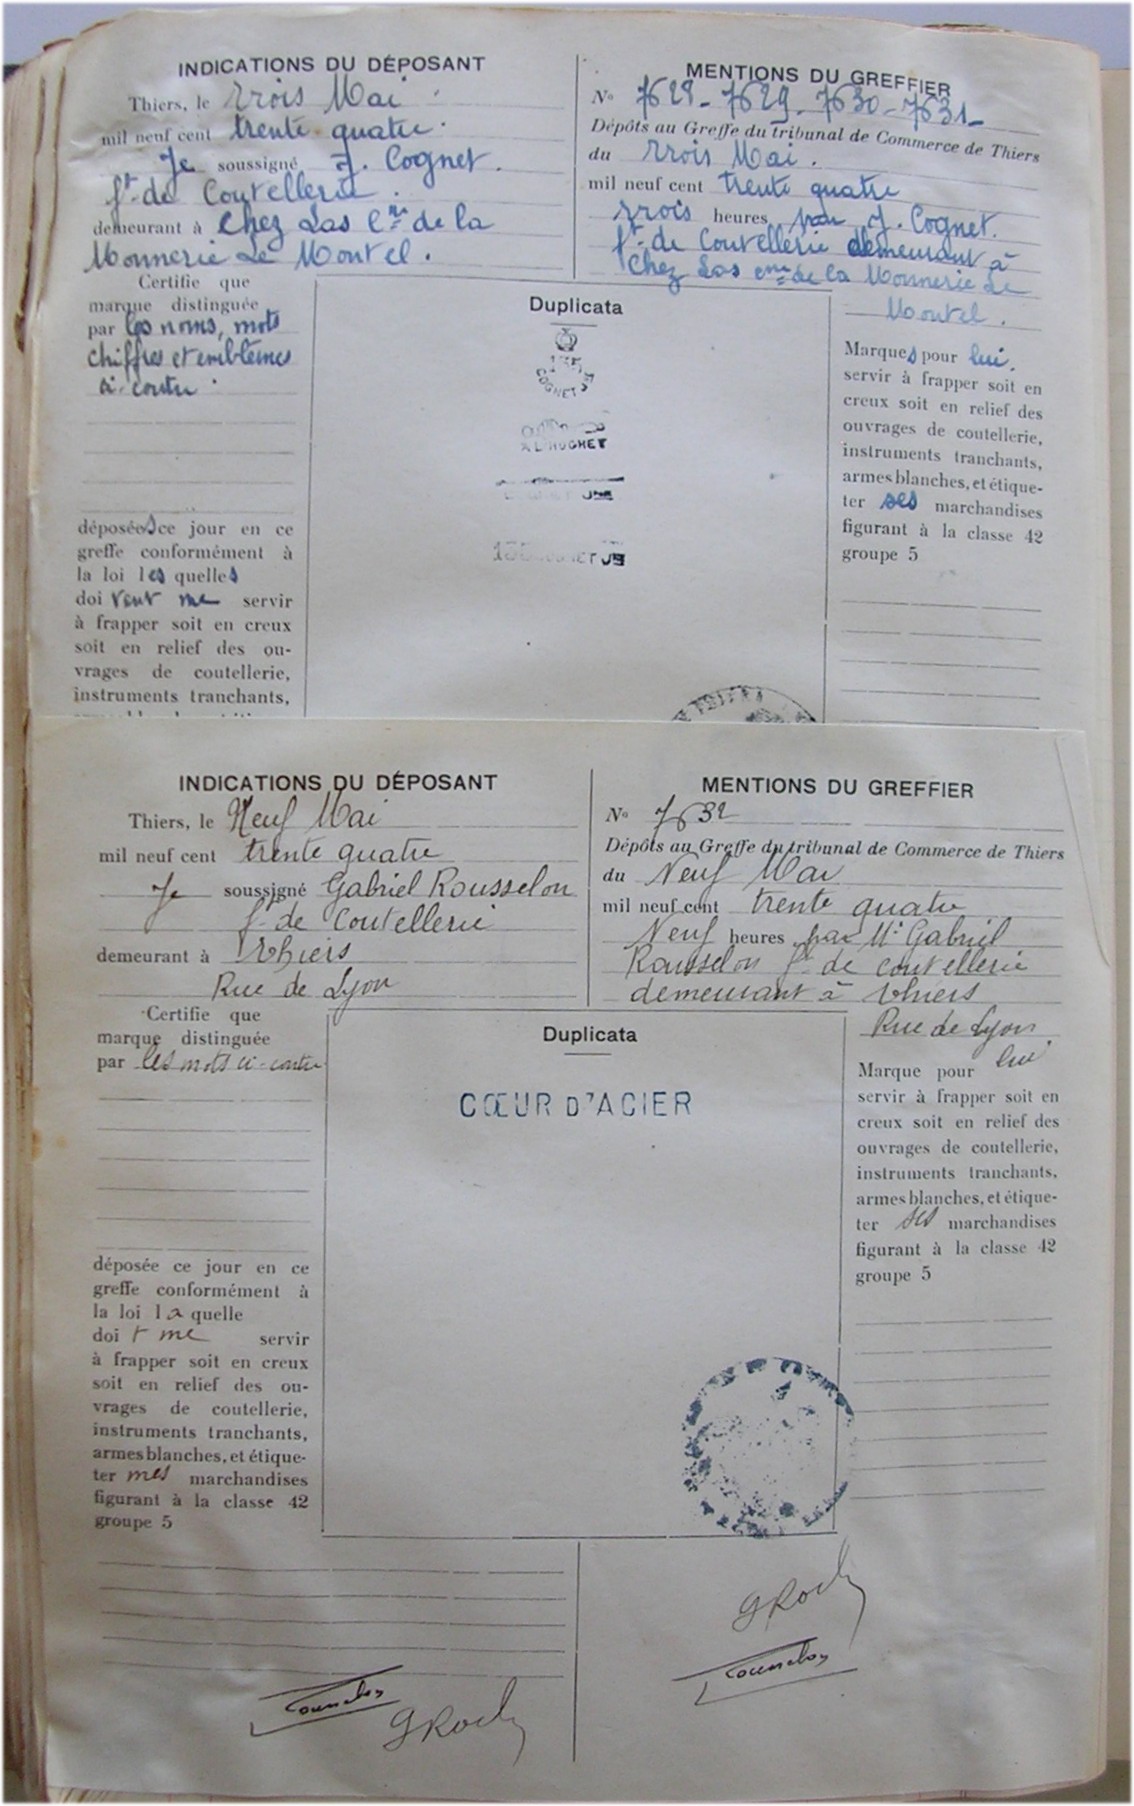 INDICATIONS DU DÉPOSANT
Thiers, le trois Mai
mil neuf cent trente quatre.
Je soussigné J. Cognet.
ft. de Coutellerie.
demeurant à Chez Las Cne de la
Monnerie Le Montel.
Certifie que
marque distinguée
par les noms, mots
chiffres et emblèmes
ci-contre.
déposées ce jour en ce
greffe conformément à
la loi les quelles
doivent me servir
à frapper soit en creux
soit en relief des ou-
vrages de coutellerie,
instruments tranchants,
MENTIONS DU GREFFIER
No 7628 - 7629 - 7630 - 7631 -
Dépôts au Greffe du tribunal de Commerce de Thiers
du trois Mai.
mil neuf cent trente quatre
trois heures par J. Cognet.
ft. de Coutellerie demeurant à
Chez Las cne de la Monnerie Le
Montel.
Duplicata
COGNET J
A L. HUGHET
Marques pour lui.
servir à frapper soit en
creux soit en relief des
ouvrages de coutellerie,
instruments tranchants,
armes blanches, et étique-
ter ses marchandises
figurant à la classe 42
groupe 5
INDICATIONS DU DÉPOSANT
Thiers, le Neuf Mai
mil neuf cent trente quatre
Je soussigné Gabriel Rousselon
ft de Coutellerie
demeurant à Thiers
Rue de Lyon
Certifie que
marque distinguée
par les mots ci-contre
déposée ce jour en ce
greffe conformément à
la loi la quelle
doit me servir
à frapper soit en creux
soit en relief des ou-
vrages de coutellerie,
instruments tranchants,
armes blanches, et étique-
ter mes marchandises
figurant à la classe 42
groupe 5
MENTIONS DU GREFFIER
No 7632
Dépôts au Greffe du tribunal de Commerce de Thiers
du Neuf Mai
mil neuf cent trente quatre
Neuf heures par Mr Gabriel
Rousselon ft de coutellerie
demeurant à Thiers
Rue de Lyon
Duplicata
CŒUR D'ACIER
Marque pour lui
servir à frapper soit en
creux soit en relief des
ouvrages de coutellerie,
instruments tranchants,
armes blanches, et étique-
ter ses marchandises
figurant à la classe 42
groupe 5